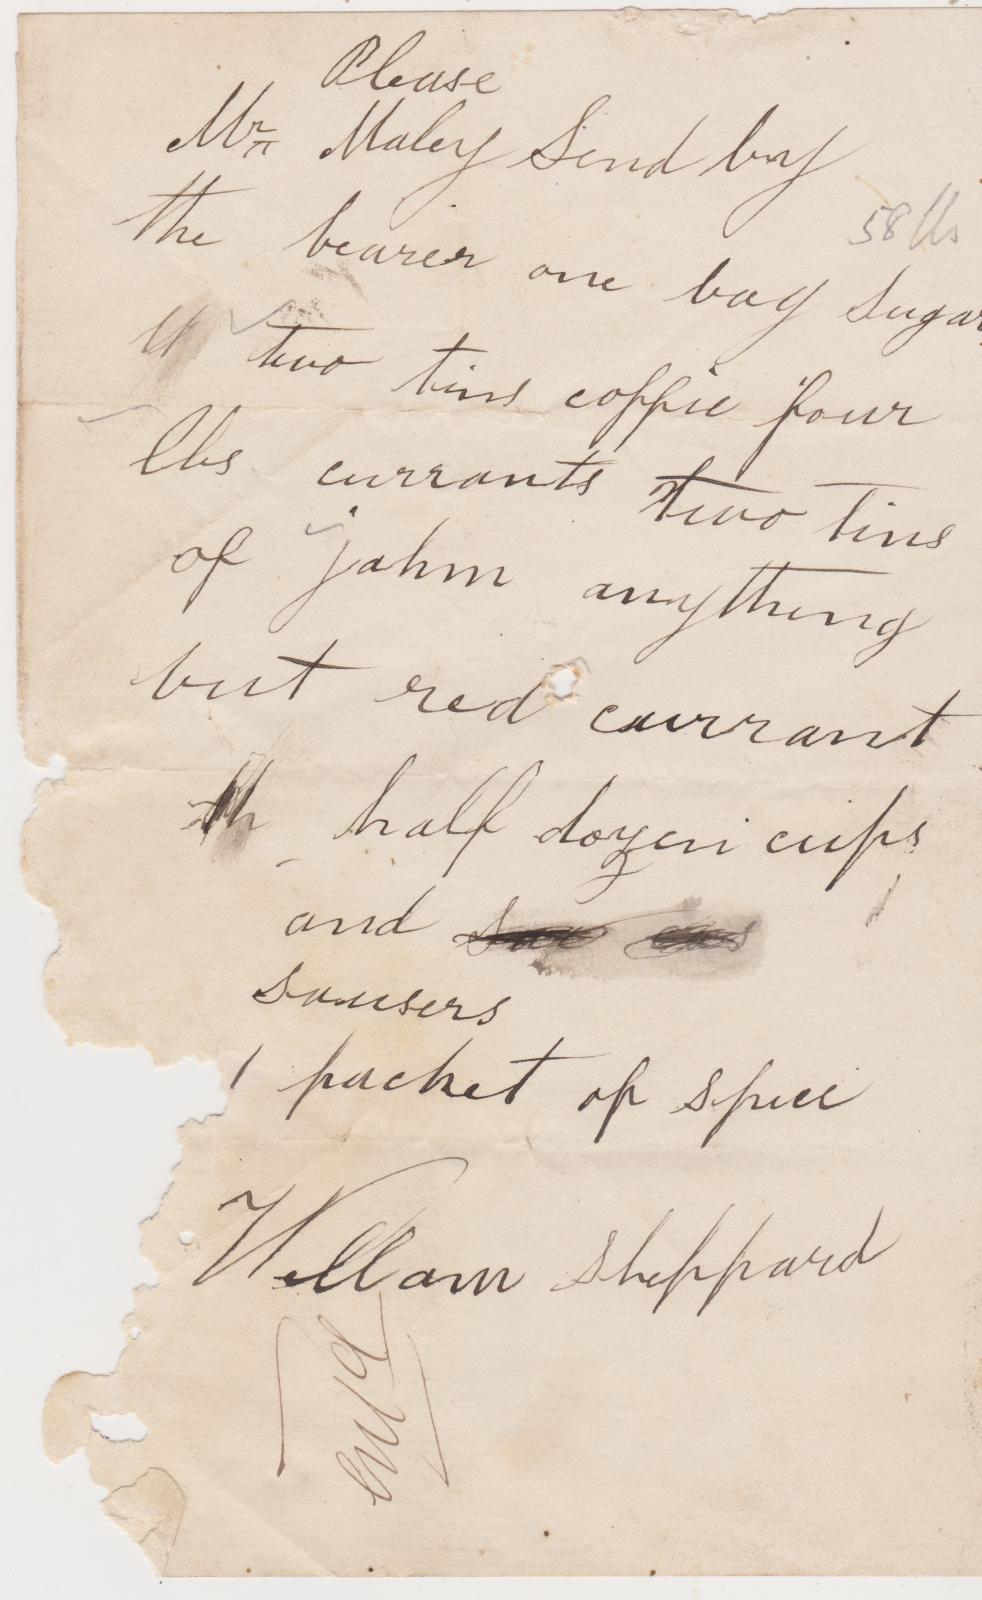 Please
Mr Maley Send by
58 lbs
the bearer one bag sugar
two tins coffie four
lbs currants two tins
of jahm anything
but red currant
half dozen cups
and
sausers
1 packet of spice
Willam Sheppard
entd